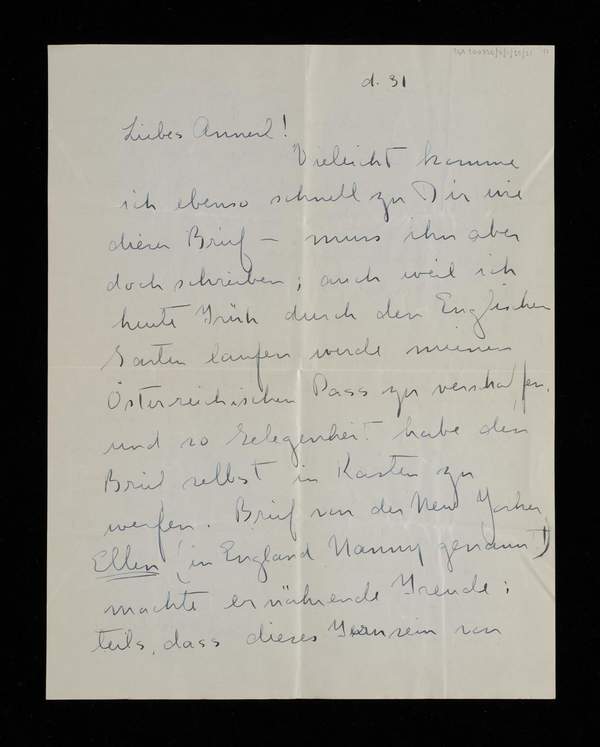 d. 31
Liebes Annerl!
Vieleicht komme
ich ebenso schnell zu Dir wie
dieser Brief – muss ihn aber
doch schreiben; auch weil ich
heute Früh durch den Englischen
Garten laufen werde meinen
Österreichischen Pass zu verschaffen,
und so Gelegenheit habe den
Brief selbst in Kasten zu
werfen. Brief von der New Yorker
Ellen (in England Nanny genannt)
machte ernährende Freude;
teils, dass dieses von